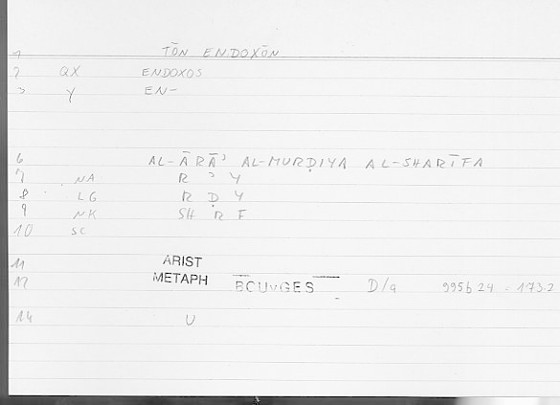 1 TŌN ENDOXŌN
2 QX ENDOXOS
3 Y EN-
6 AL-ĀRĀʾ AL-MURḌIYA AL-SHARĪFA
7 NA R ʾ Y
8 LG R Ḍ Y
9 NK SH R F
10 SC
11 ARIST
12 METAPH BOUYGES D/a 995b24 = 173.2
14 U